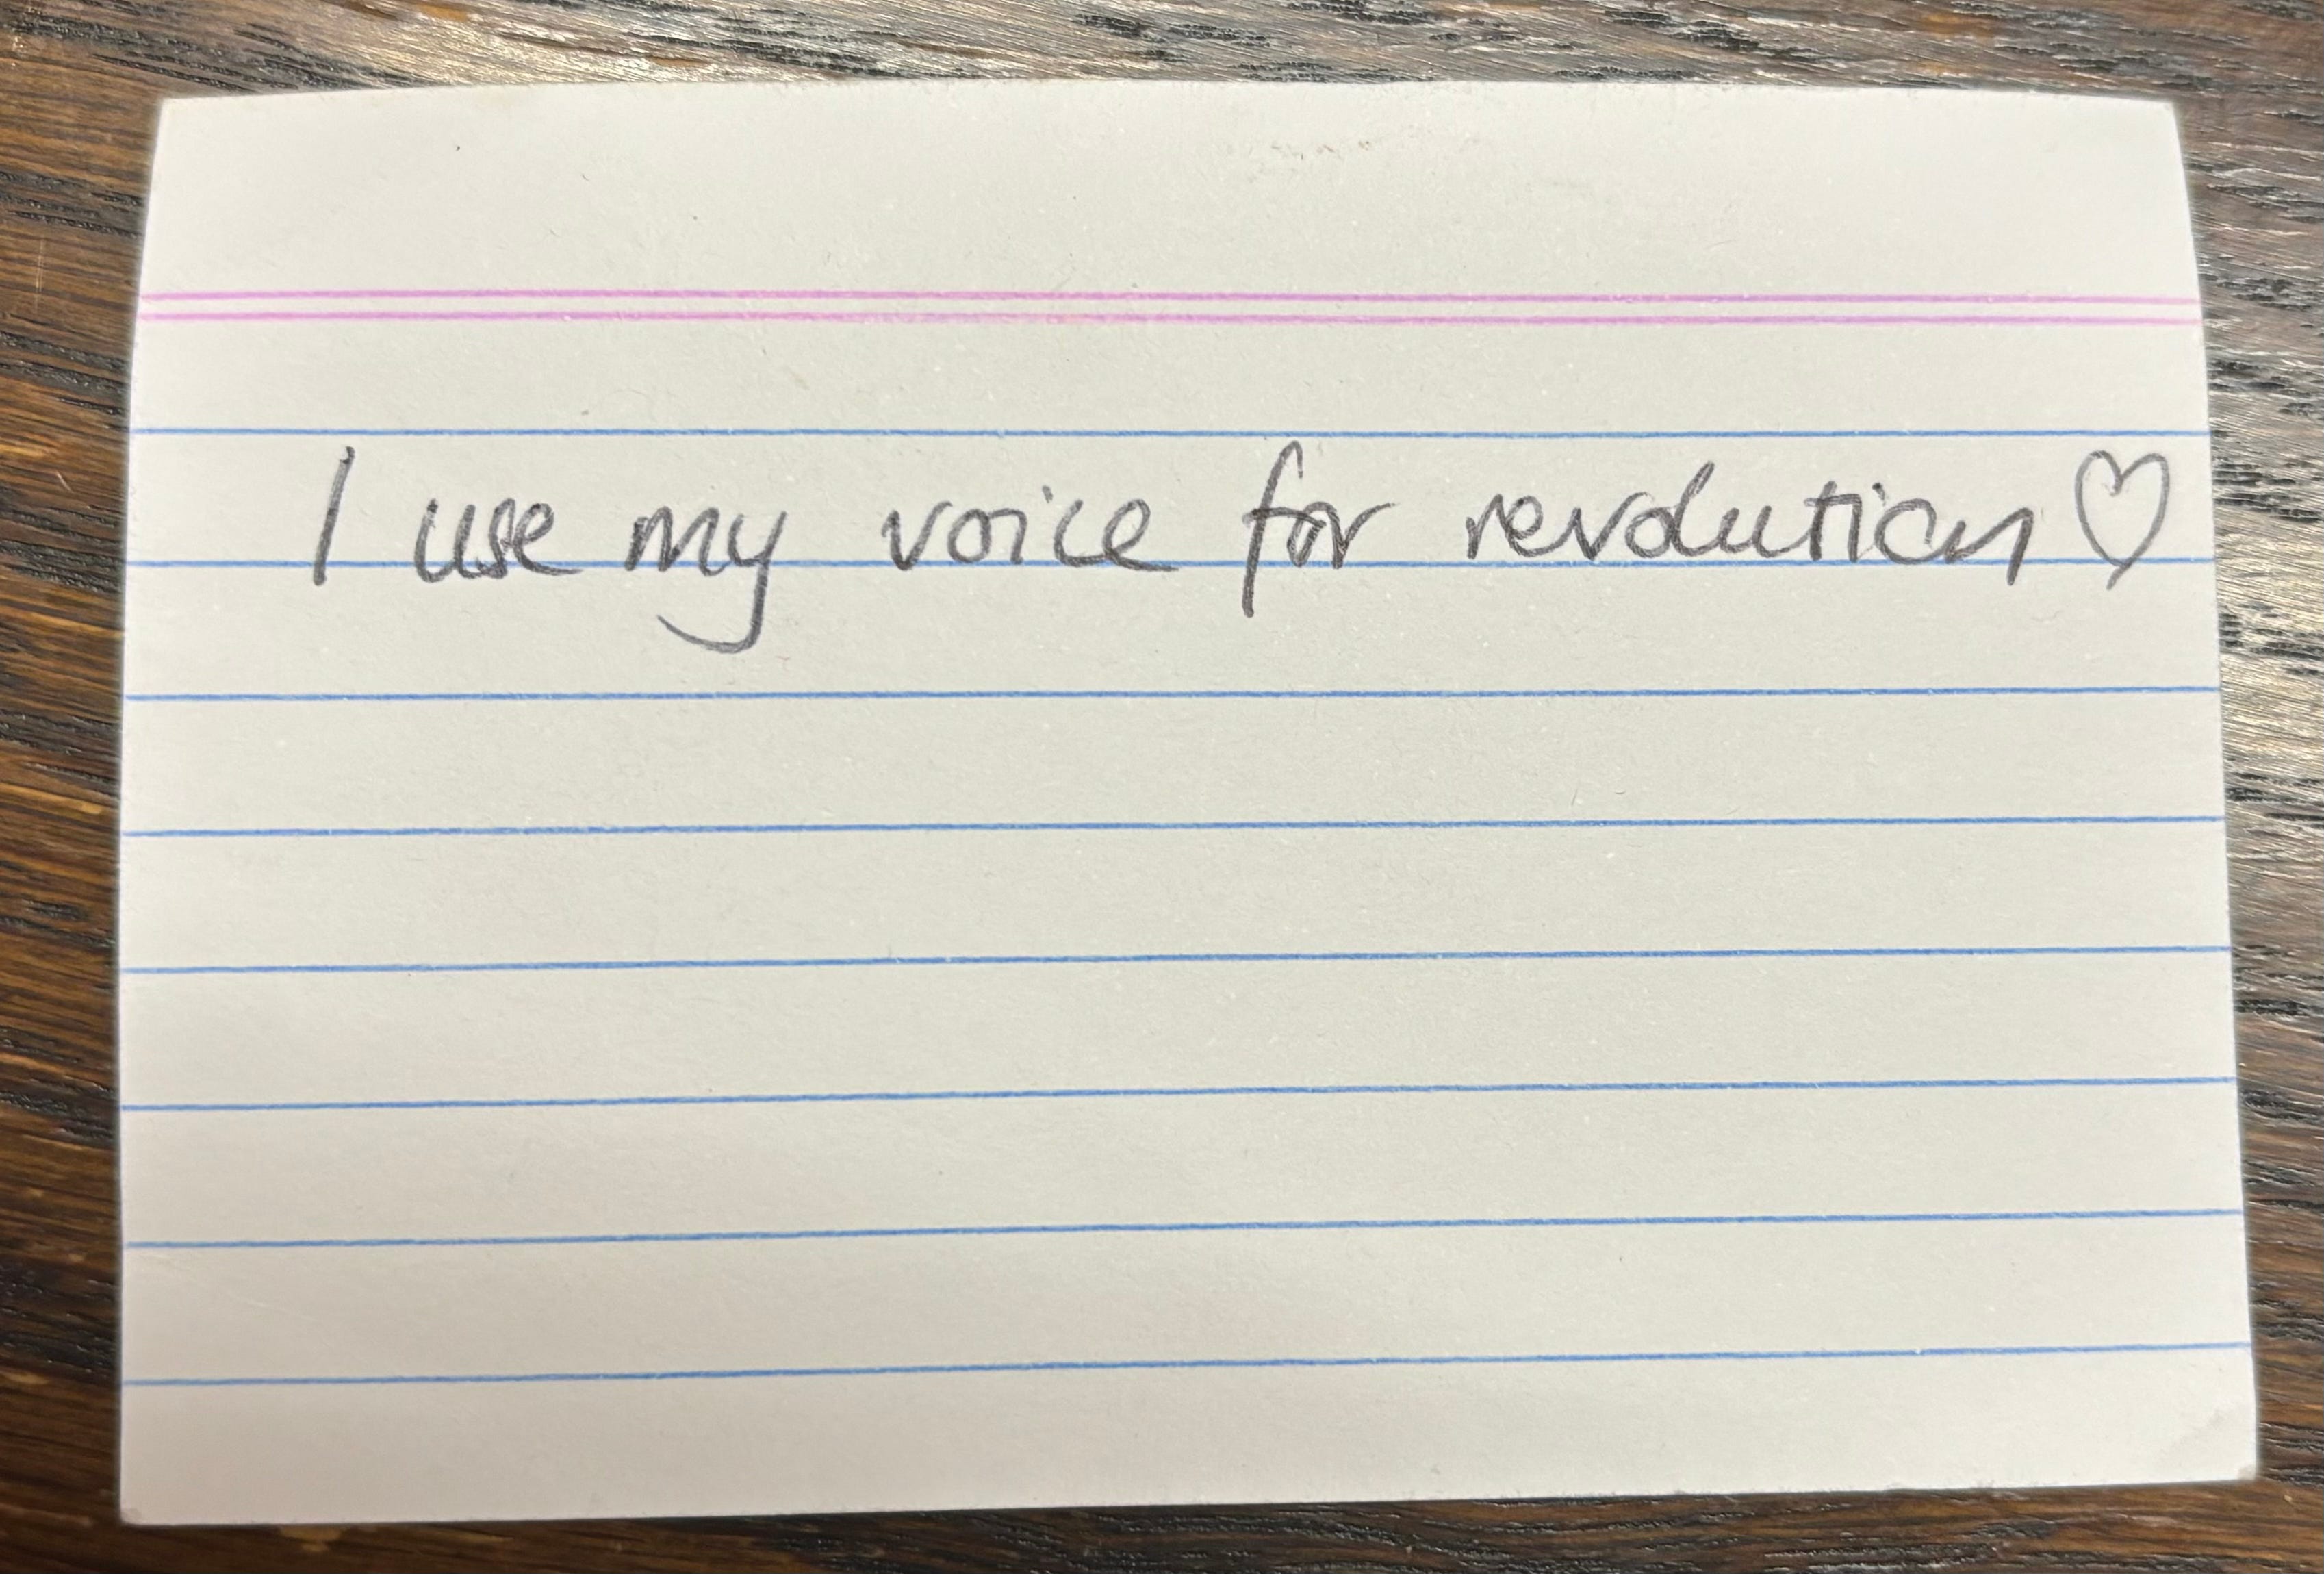 I use my voice for revolution♡